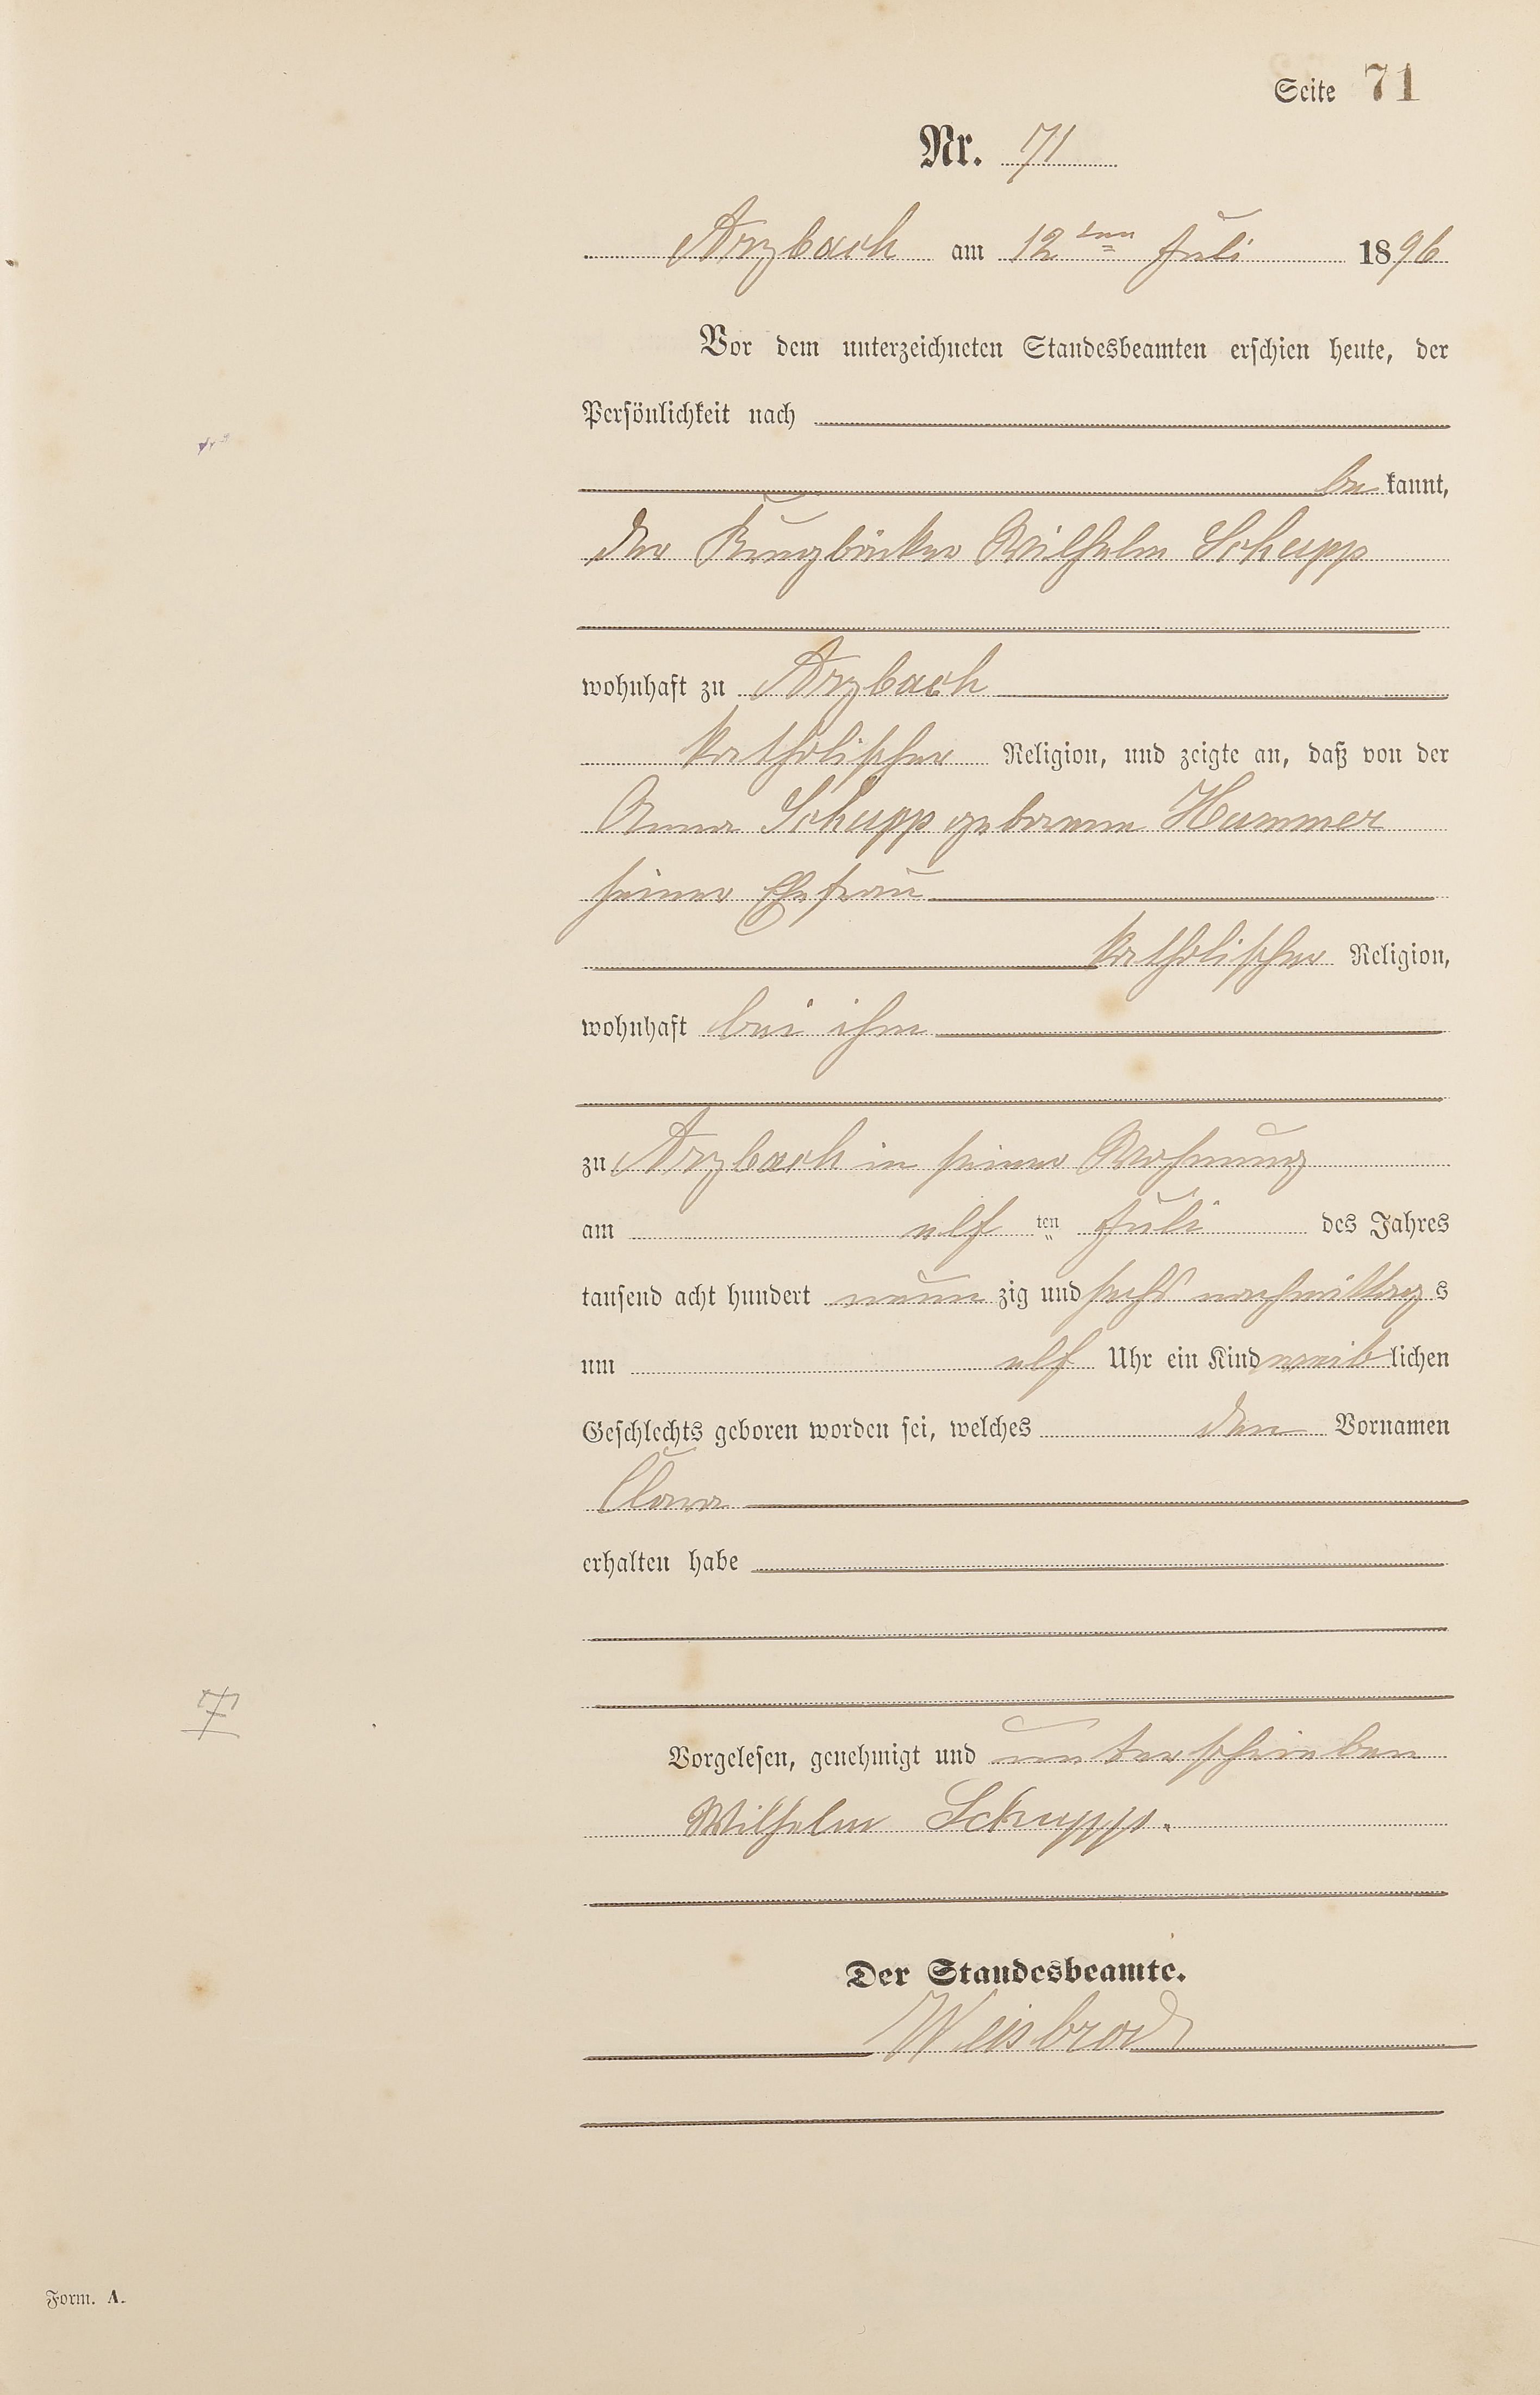 Seite 71
Nr. 71
Arzbach am 12ten Juli 1896
Vor dem unterzeichneten Standesbeamten erschien heute, der
Persönlichkeit nach
be kannt,
der Krugbäcker Wilhelm Schupp
wohnhaft zu Arzbach
katholischer Religion, und zeigte an, daß von der
Anna Schupp geborenen Hammer
seiner Ehefrau
katholischer Religion,
wohnhaft bei ihm
zu Arzbach in seiner Wohnung
am elf ten Juli des Jahres
tausend acht hundert neun zig und sechs nachmittag s
um elf Uhr ein Kind weib lichen
Geschlechts geboren worden sei, welches den Vornamen
Clara
erhalten habe
7
Vorgelesen, genehmigt und unterschrieben
Wilhelm Schupp.
Der Standesbeamte.
Weisbrod
Form. A.